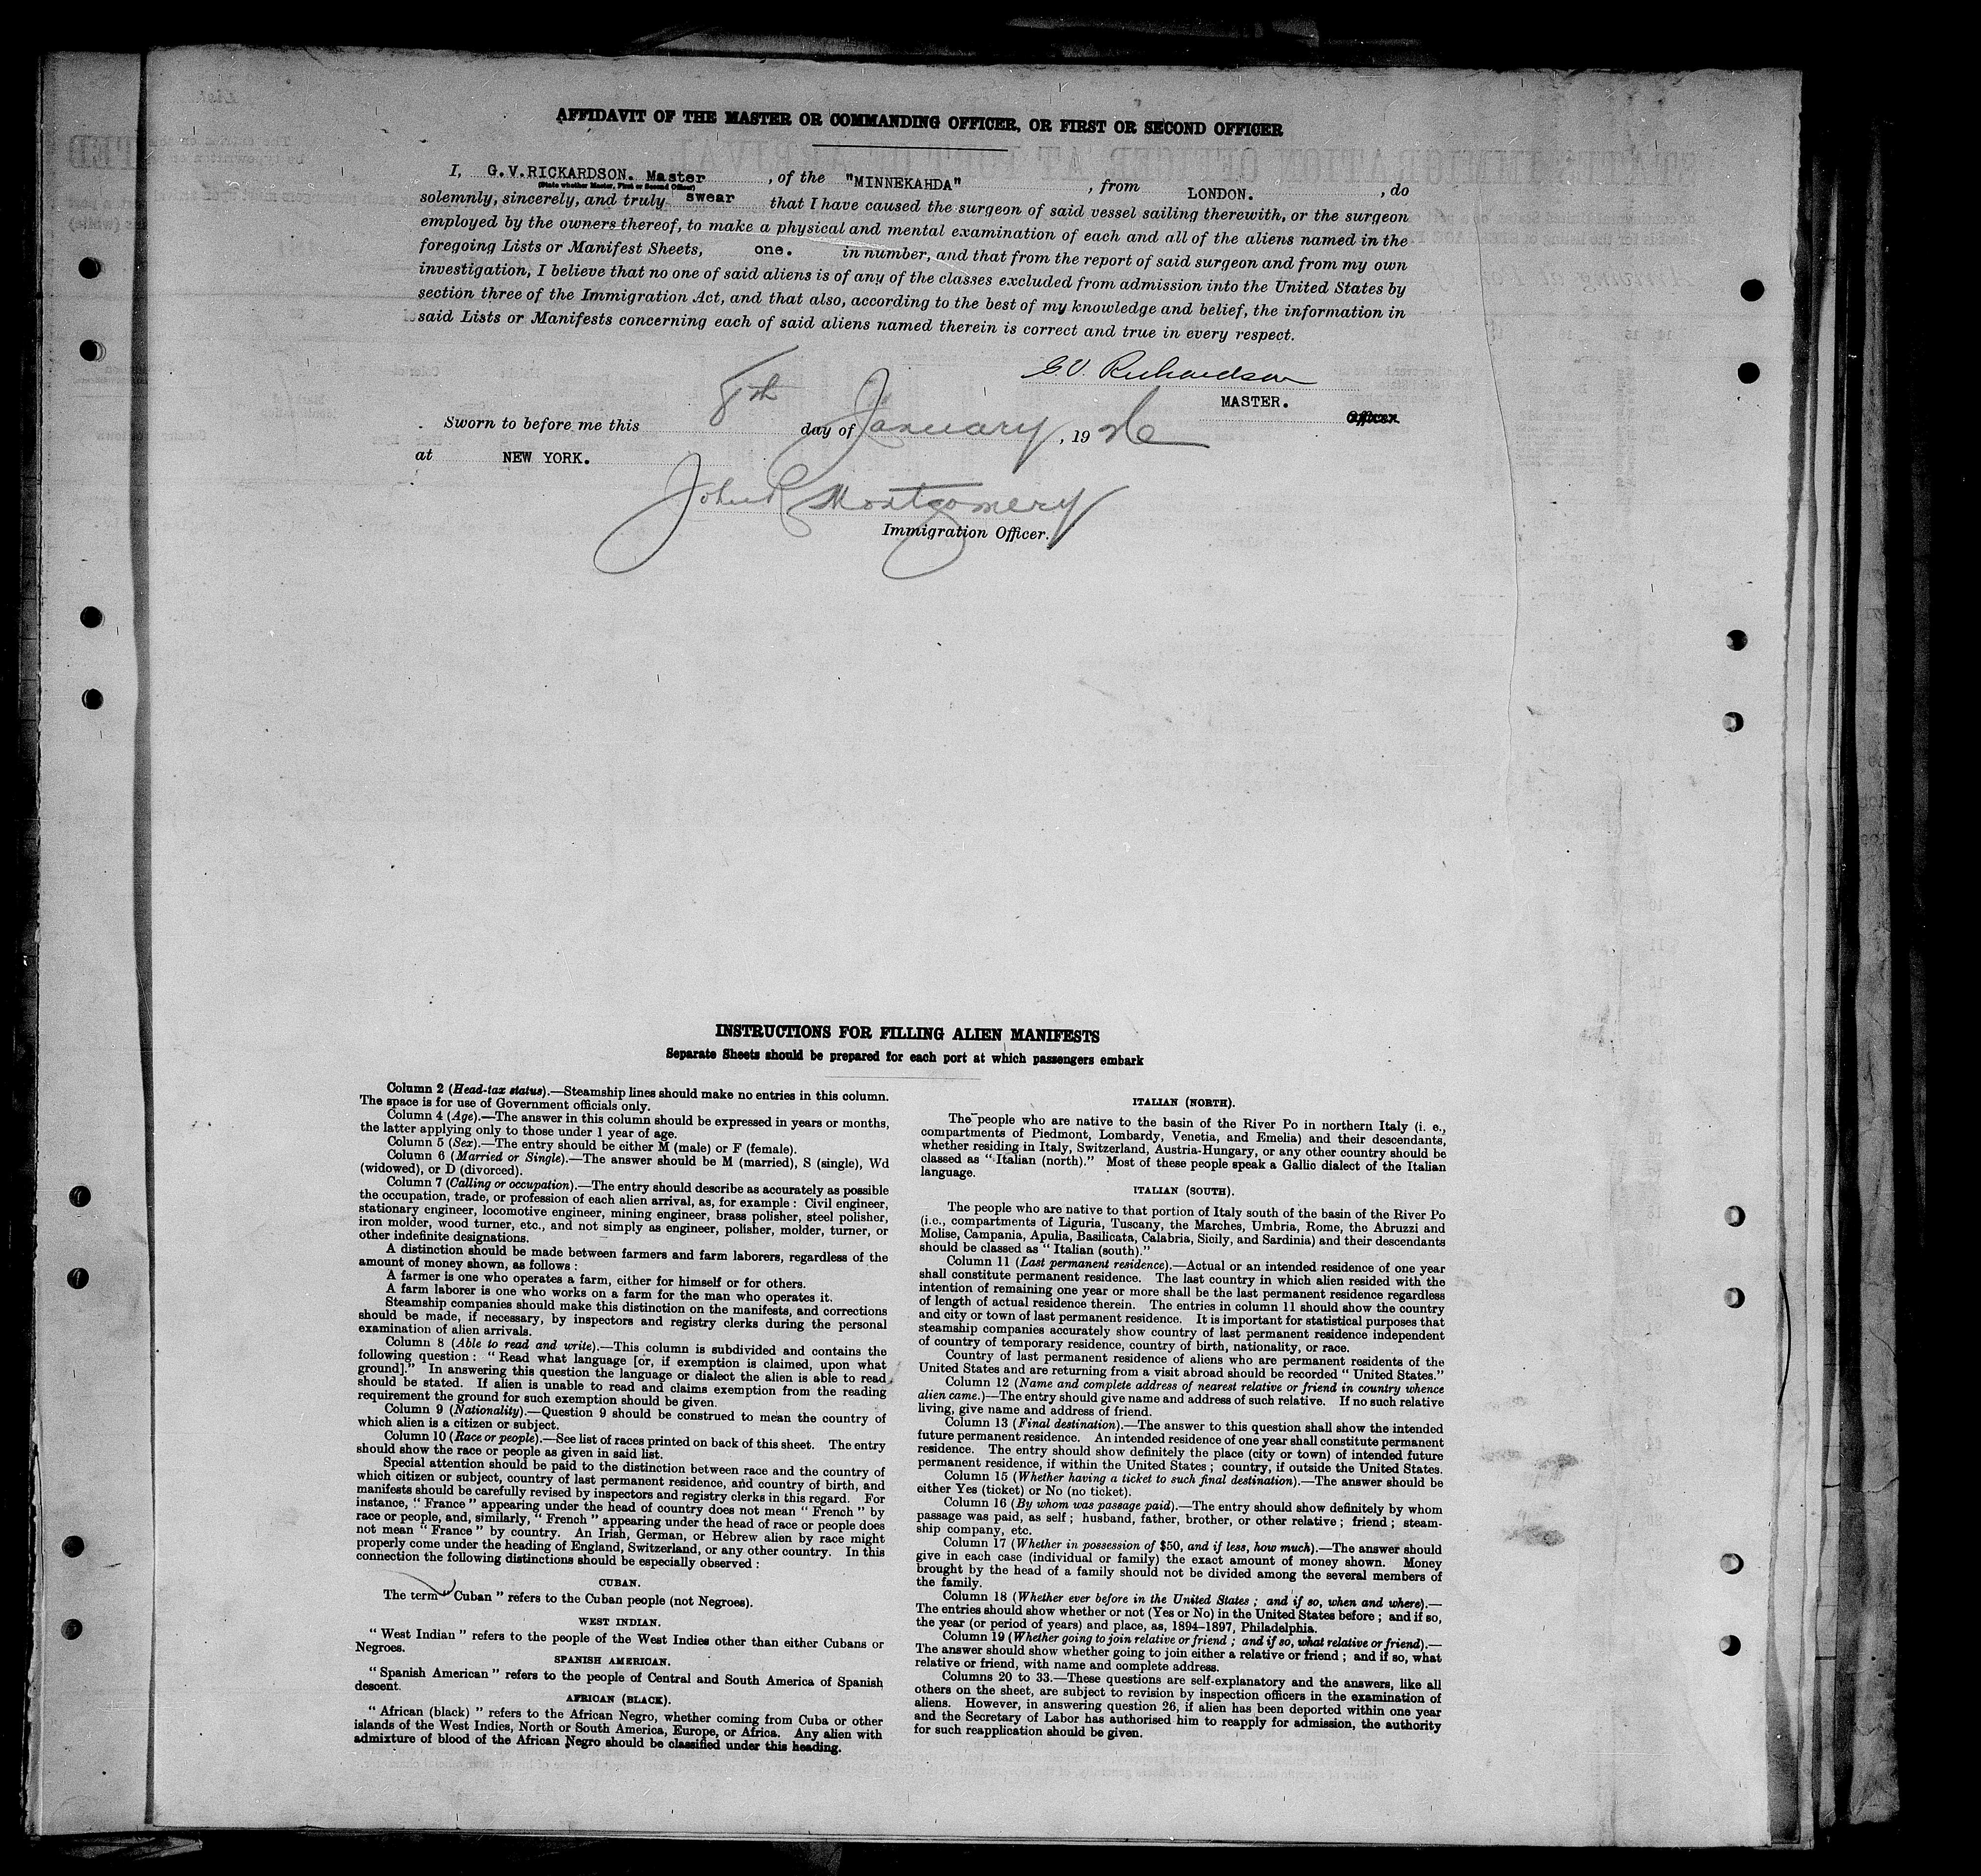 AFFIDAVIT OF THE MASTER OR COMMANDING OFFICER, OR FIRST OR SECOND OFFICER
I, G.V.RICKARDSON. Master , of the "MINNEKAHDA" , from LONDON. , do
(State whether Master, First or Second Officer)
solemnly, sincerely, and truly swear that I have caused the surgeon of said vessel sailing therewith, or the surgeon
employed by the owners thereof, to make a physical and mental examination of each and all of the aliens named in the
foregoing Lists or Manifest Sheets, one. in number, and that from the report of said surgeon and from my own
investigation, I believe that no one of said aliens is of any of the classes excluded from admission into the United States by
section three of the Immigration Act, and that also, according to the best of my knowledge and belief, the information in
said Lists or Manifests concerning each of said aliens named therein is correct and true in every respect.
G.V. Richardson
MASTER.
Officer.
Sworn to before me this 8th day of January, 1926
at NEW YORK.
John R Montgomery
Immigration Officer.
INSTRUCTIONS FOR FILLING ALIEN MANIFESTS
Separate Sheets should be prepared for each port at which passengers embark
Column 2 (Head-tax status).—Steamship lines should make no entries in this column.
The space is for use of Government officials only.
Column 4 (Age).—The answer in this column should be expressed in years or months,
the latter applying only to those under 1 year of age.
Column 5 (Sex).—The entry should be either M (male) or F (female).
Column 6 (Married or Single).—The answer should be M (married), S (single), Wd
(widowed), or D (divorced).
Column 7 (Calling or occupation).—The entry should describe as accurately as possible
the occupation, trade, or profession of each alien arrival, as, for example : Civil engineer,
stationary engineer, locomotive engineer, mining engineer, brass polisher, steel polisher,
iron molder, wood turner, etc., and not simply as engineer, polisher, molder, turner, or
other indefinite designations.
A distinction should be made between farmers and farm laborers, regardless of the
amount of money shown, as follows :
A farmer is one who operates a farm, either for himself or for others.
A farm laborer is one who works on a farm for the man who operates it.
Steamship companies should make this distinction on the manifests, and corrections
should be made, if necessary, by inspectors and registry clerks during the personal
examination of alien arrivals.
Column 8 (Able to read and write).—This column is subdivided and contains the
following question : " Read what language [or, if exemption is claimed, upon what
ground]." In answering this question the language or dialect the alien is able to read
should be stated. If alien is unable to read and claims exemption from the reading
requirement the ground for such exemption should be given.
Column 9 (Nationality).—Question 9 should be construed to mean the country of
which alien is a citizen or subject.
Column 10 (Race or people).—See list of races printed on back of this sheet. The entry
should show the race or people as given in said list.
Special attention should be paid to the distinction between race and the country of
which citizen or subject, country of last permanent residence, and country of birth, and
manifests should be carefully revised by inspectors and registry clerks in this regard. For
instance, " France " appearing under the head of country does not mean " French " by
race or people, and, similarly, " French " appearing under the head of race or people does
not mean " France " by country. An Irish, German, or Hebrew alien by race might
properly come under the heading of England, Switzerland, or any other country. In this
connection the following distinctions should be especially observed :
CUBAN.
The term " Cuban " refers to the Cuban people (not Negroes).
WEST INDIAN.
" West Indian " refers to the people of the West Indies other than either Cubans or
Negroes.
SPANISH AMERICAN.
" Spanish American " refers to the people of Central and South America of Spanish
descent.
AFRICAN (BLACK).
" African (black) " refers to the African Negro, whether coming from Cuba or other
islands of the West Indies, North or South America, Europe, or Africa. Any alien with
admixture of blood of the African Negro should be classified under this heading.
ITALIAN (NORTH).
The people who are native to the basin of the River Po in northern Italy (i. e.,
compartments of Piedmont, Lombardy, Venetia, and Emelia) and their descendants,
whether residing in Italy, Switzerland, Austria-Hungary, or any other country should be
classed as " Italian (north)." Most of these people speak a Gallic dialect of the Italian
language.
ITALIAN (SOUTH).
The people who are native to that portion of Italy south of the basin of the River Po
(i.e., compartments of Liguria, Tuscany, the Marches, Umbria, Rome, the Abruzzi and
Molise, Campania, Apulia, Basilicata, Calabria, Sicily, and Sardinia) and their descendants
should be classed as " Italian (south)."
Column 11 (Last permanent residence).—Actual or an intended residence of one year
shall constitute permanent residence. The last country in which alien resided with the
intention of remaining one year or more shall be the last permanent residence regardless
of length of actual residence therein. The entries in column 11 should show the country
and city or town of last permanent residence. It is important for statistical purposes that
steamship companies accurately show country of last permanent residence independent
of country of temporary residence, country of birth, nationality, or race.
Country of last permanent residence of aliens who are permanent residents of the
United States and are returning from a visit abroad should be recorded " United States."
Column 12 (Name and complete address of nearest relative or friend in country whence
alien came.)—The entry should give name and address of such relative. If no such relative
living, give name and address of friend.
Column 13 (Final destination).—The answer to this question shall show the intended
future permanent residence. An intended residence of one year shall constitute permanent
residence. The entry should show definitely the place (city or town) of intended future
permanent residence, if within the United States ; country, if outside the United States.
Column 15 (Whether having a ticket to such final destination).—The answer should be
either Yes (ticket) or No (no ticket).
Column 16 (By whom was passage paid).—The entry should show definitely by whom
passage was paid, as self ; husband, father, brother, or other relative ; friend ; steam-
ship company, etc.
Column 17 (Whether in possession of $50, and if less, how much).—The answer should
give in each case (individual or family) the exact amount of money shown. Money
brought by the head of a family should not be divided among the several members of
the family.
Column 18 (Whether ever before in the United States ; and if so, when and where).—
The entries should show whether or not (Yes or No) in the United States before ; and if so,
the year (or period of years) and place, as, 1894–1897, Philadelphia.
Column 19 (Whether going to join relative or friend ; and if so, what relative or friend).—
The answer should show whether going to join either a relative or friend ; and if so, what
relative or friend, with name and complete address.
Columns 20 to 33.—These questions are self-explanatory and the answers, like all
others on the sheet, are subject to revision by inspection officers in the examination of
aliens. However, in answering question 26, if alien has been deported within one year
and the Secretary of Labor has authorised him to reapply for admission, the authority
for such reapplication should be given.